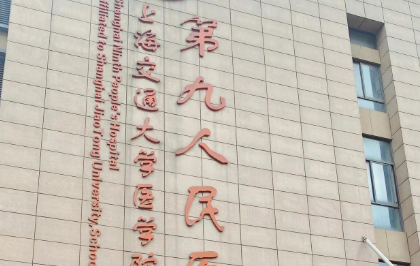 第九人民医
上海交通大学医学院
Shanghai Ninth People's Hospital
ffiliated to Shanghai JiaoTong University, Schoo